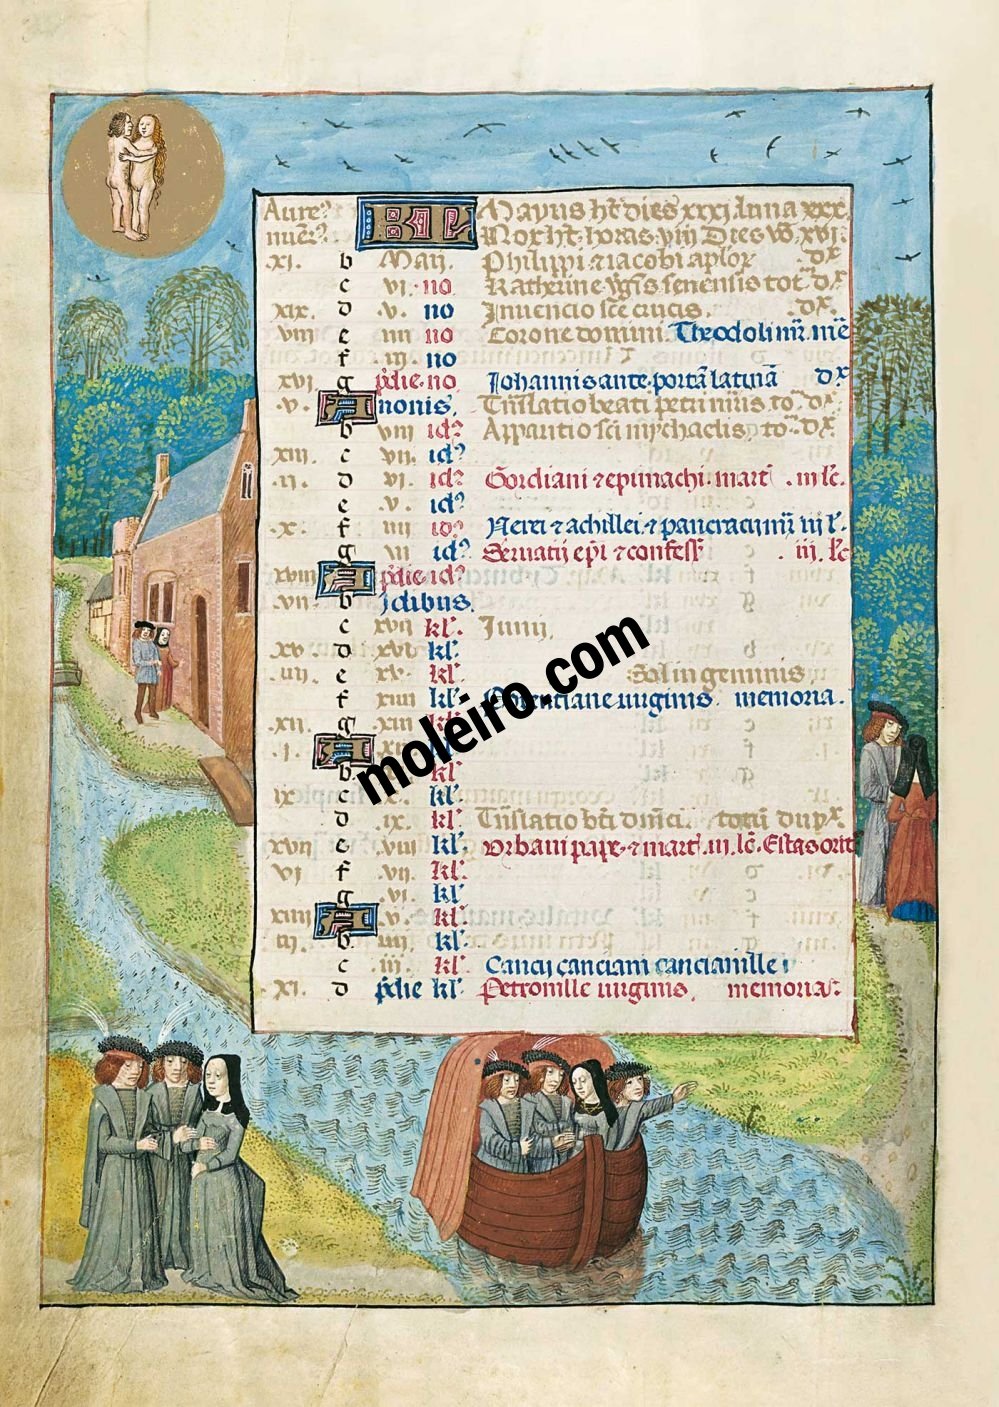 Aure9 KL Mayus ht dies xxxi luna xxx.
nuer9. Nox ht horas viij Dies vo xvi.
.xi. b Maij. Philippi ⁊ iacobi aplor dx
c vi. no Katherine vgis senensis tot dx
xix. d .v. no Inuencio sce crucis. dx.
viij e iiij no Corone domini. Theodoli mr. me
f iij. no
xvi. g pdie. no Iohannis ante portā latinā dx
.v. A nonis. Tnslatio beati petri mris to dx.
b viij id9 Apparitio sci michaelis, to dx.
xiij. c vij. id9
.ij. d vi. id9 Gordiani ⁊ epimachi mart .iij lc.
e .v. id9
.x. f iiij id9 Nerei ⁊ achillei ⁊ pancracij mr iij l.
g iij id9 Seruatij epi ⁊ confess. iij. lc
xviij A pdie id9
.vij. b Idibus.
c xvij kl. Iunij.
xv. d xvi kl.
.iiij. e xv. kl. Sol in geminis
f xiiij kl. uirginis memoria.
.xij. g xiij kl.
.i. A
b kl
.ix c .x. kl.
d .ix. kl. Tnslatio bti dnici. totū dupx
xvij e .viij kl. Vrbani pape ⁊ mart. iij. lc. Estas orit
vi f .vij. kl.
g .vi. kl
xiiij A .v. kl.
iij. b iiij kl.
c .iij. kl. Cancij canciani cancianille
.xi. d pdie kl. Petronille uirginis. memoria.
moleiro.com